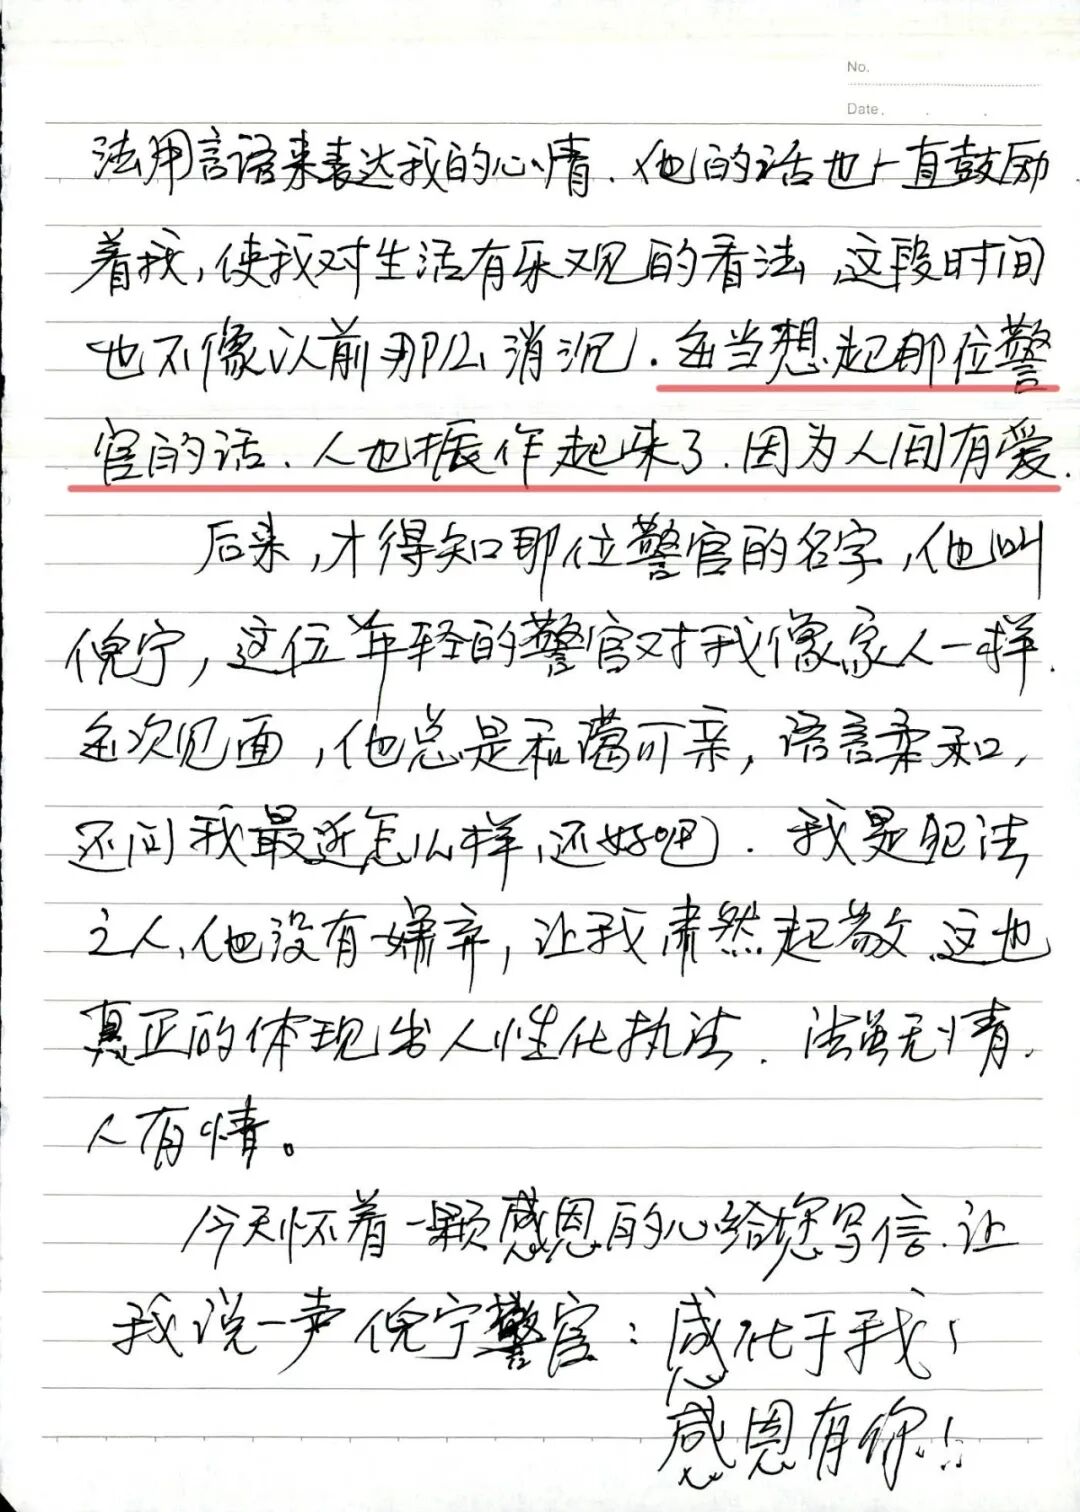 No.
Date.
法用言语来表达我的心情.他的话也一直鼓励
着我,使我对生活有乐观的看法,这段时间
也不像以前那么消沉.每当想起那位警
官的话、人也振作起来了.因为人间有爱.
后来,才得知那位警官的名字,他叫
倪宁,这位年轻的警官对我像家人一样.
每次见面,他总是和蔼可亲,语言柔和,
还问我最近怎么样,还好吧).我是犯法
之人,他没有嫌弃,让我肃然起敬.这也
真正的体现出人性化执法.法虽无情.
人有情。
今天怀着一颗感恩的心给您写信.让
我说一声倪宁警官:感化于我!
感恩有你!